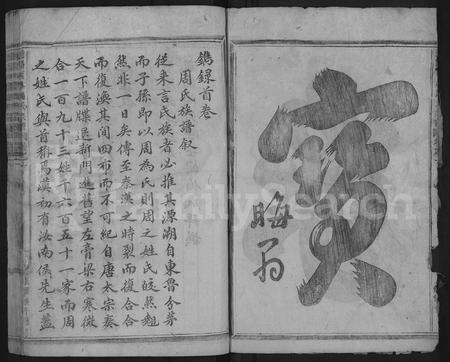 寳
晦翁
鐫錄首卷
周氏族譜叙
從来言氏族者必推其源溯自東魯分茅
而子孫即以周為氏則周之姓氏皎然魁
然非一日矣傳至秦漢之時裂而復合合
而復渙其間四布而不可紀自唐太宗奏
天下譜牒退新門進舊望左膏梁右寒微
合一百九十三姓千六百五十一家而周
之姓氏與首称焉漢初有汝南侯先生蓋
FamilySearch